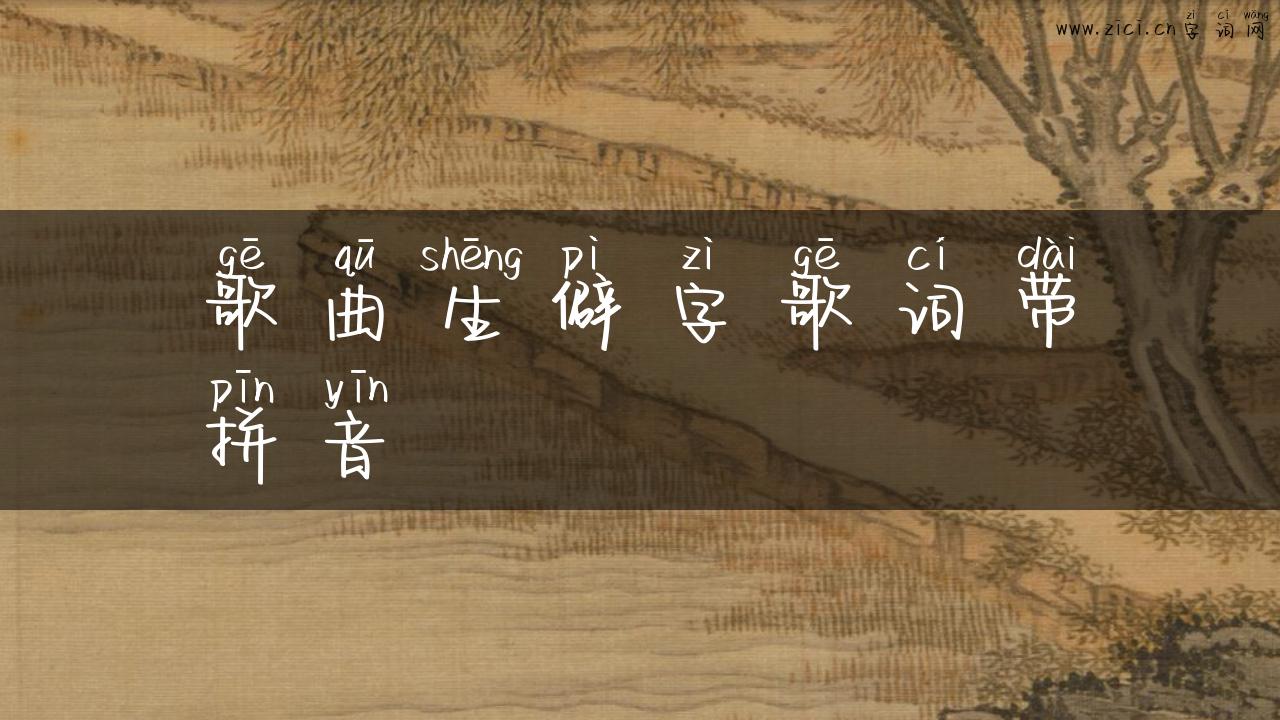 zì cí wǎng
www.zici.cn 字 词 网
gē qū shēng pì zì gē cí dài
歌 曲 生 僻 字 歌 词 带
pīn yīn
拼 音